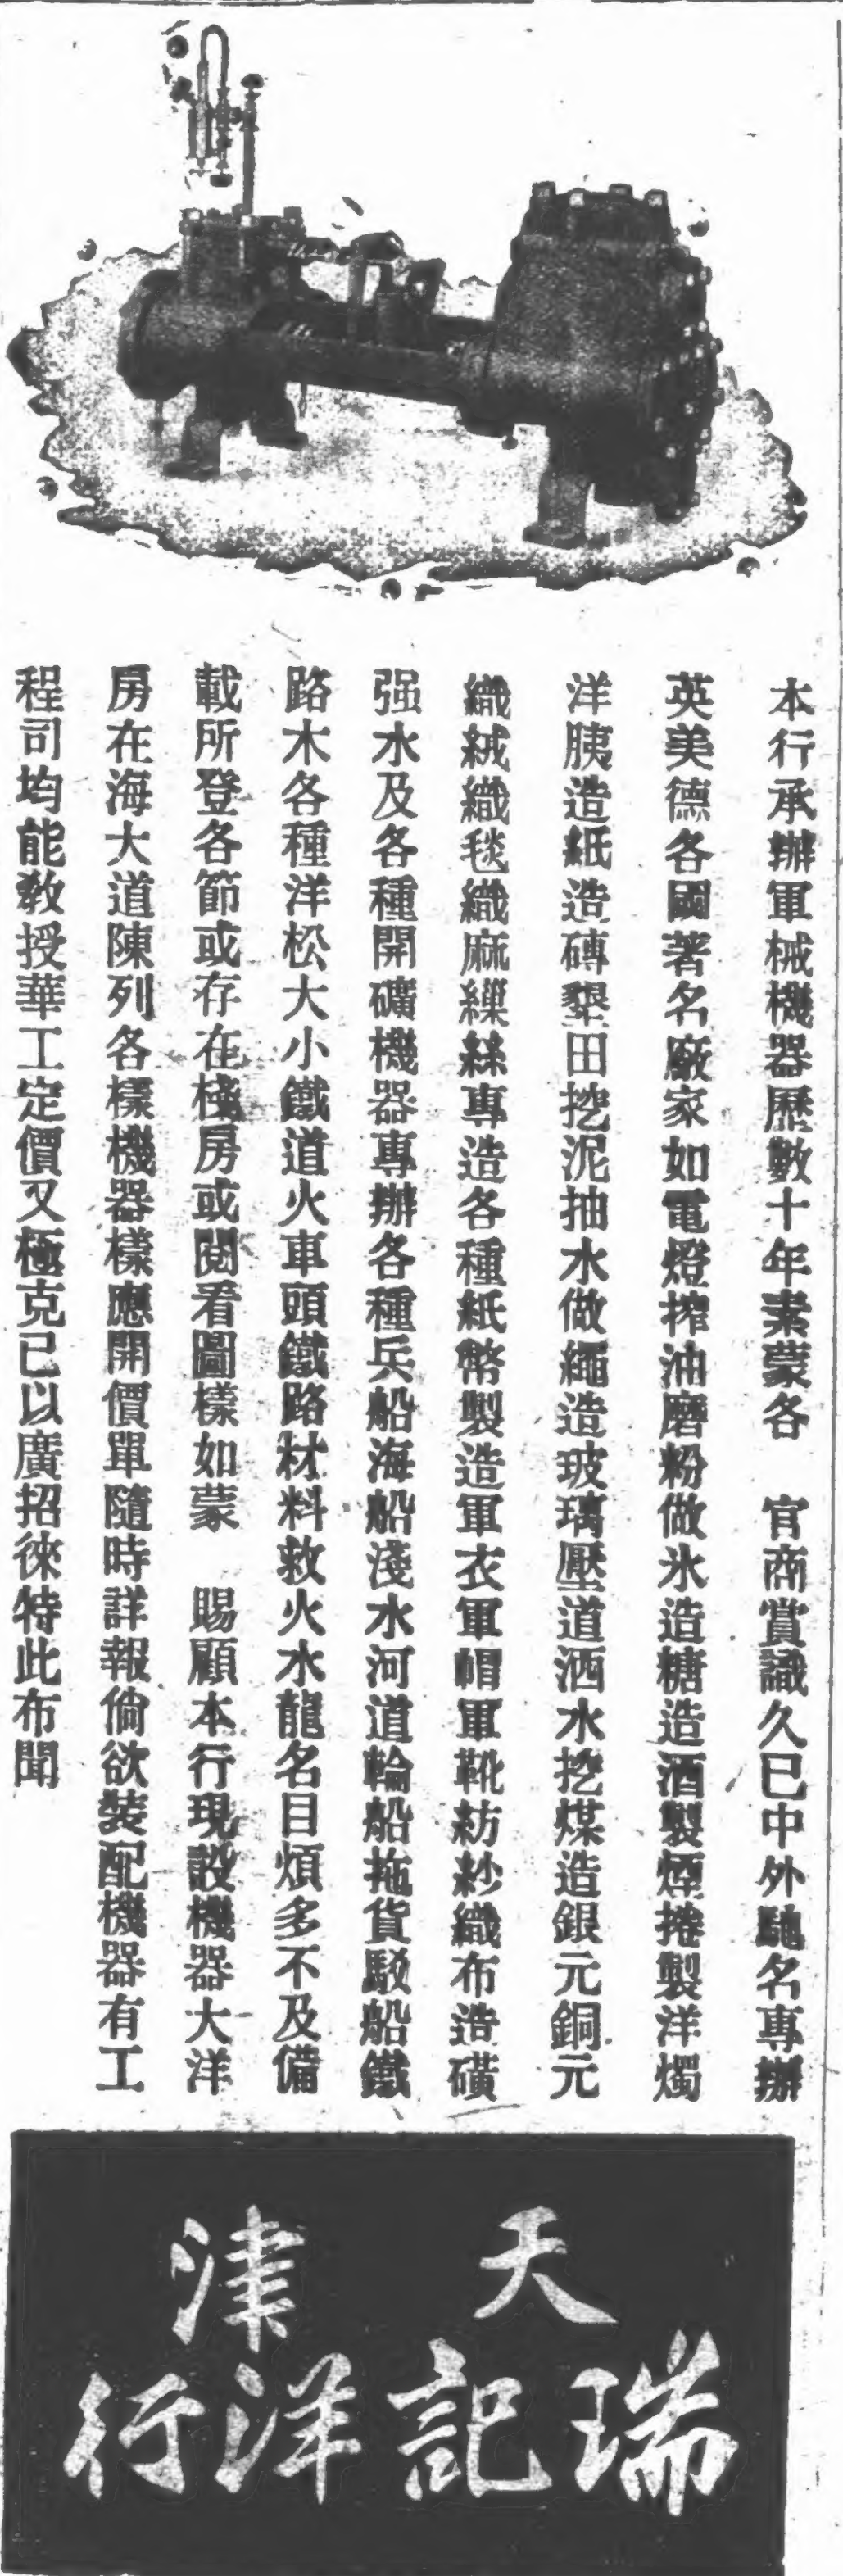 本行承辦軍械機器歷數十年素蒙各　官商賞識久已中外馳名專辦
英美德各國著名廠家如電燈搾油磨粉做氷造糖造酒製煙捲製洋燭
洋胰造紙造磚墾田挖泥抽水做繩造玻璃壓道洒水挖煤造銀元銅元
織絨織毯織麻繅絲專造各種紙幣製造軍衣軍帽軍靴紡紗織布造磺
强水及各種開礦機器專辦各種兵船海船淺水河道輪船拖貨駁船鐵
路木各種洋松大小鐵道火車頭鐵路材料救火水龍名目煩多不及備
載所登各節或存在棧房或閱看圖樣如蒙　賜顧本行現設機器大洋
房在海大道陳列各樣機器樣應開價單隨時詳報倘欲裝配機器有工
程司均能敎授華工定價又極克已以廣招徠特此布聞
天津
瑞記洋行